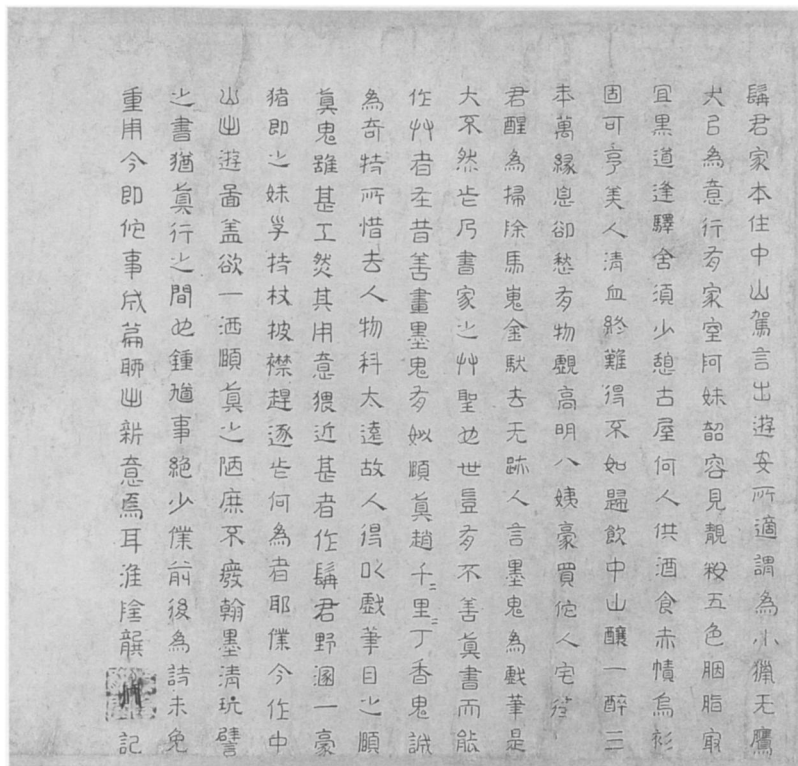 髯君家本住中山駕言出遊安所適謂為小獵无鷹
犬㠯為意行有家室阿妹韶容見靚粧五色胭脂最
宜黑道逢驛舍須少憩古屋何人供酒食赤幘烏衫
固可亨美人清血終難得不如歸飲中山釀一醉三
年萬緣息卻愁有物覷高明八姨豪買佗人宅待
君醒為掃除馬嵬金馱去无跡人言墨鬼為戲筆是
大不然此乃書家之艸聖也世豈有不善真書而能
作艸者在昔善畫墨鬼有姒頤真趙千〻里〻丁香鬼誠
為奇特所惜去人物科太遠故人得以戲筆目之頤
真鬼雖甚工然其用意猥近甚者作髯君野溷一豪
豬即之妹子持杖披襟趕逐此何為者耶僕今作中
山出遊圖蓋欲一洒頤真之陋庶不廢翰墨清玩譬
之書猶真行之間也鍾馗事絕少僕前後為詩未免
重用今即佗事成篇聊出新意焉耳淮陰龔記